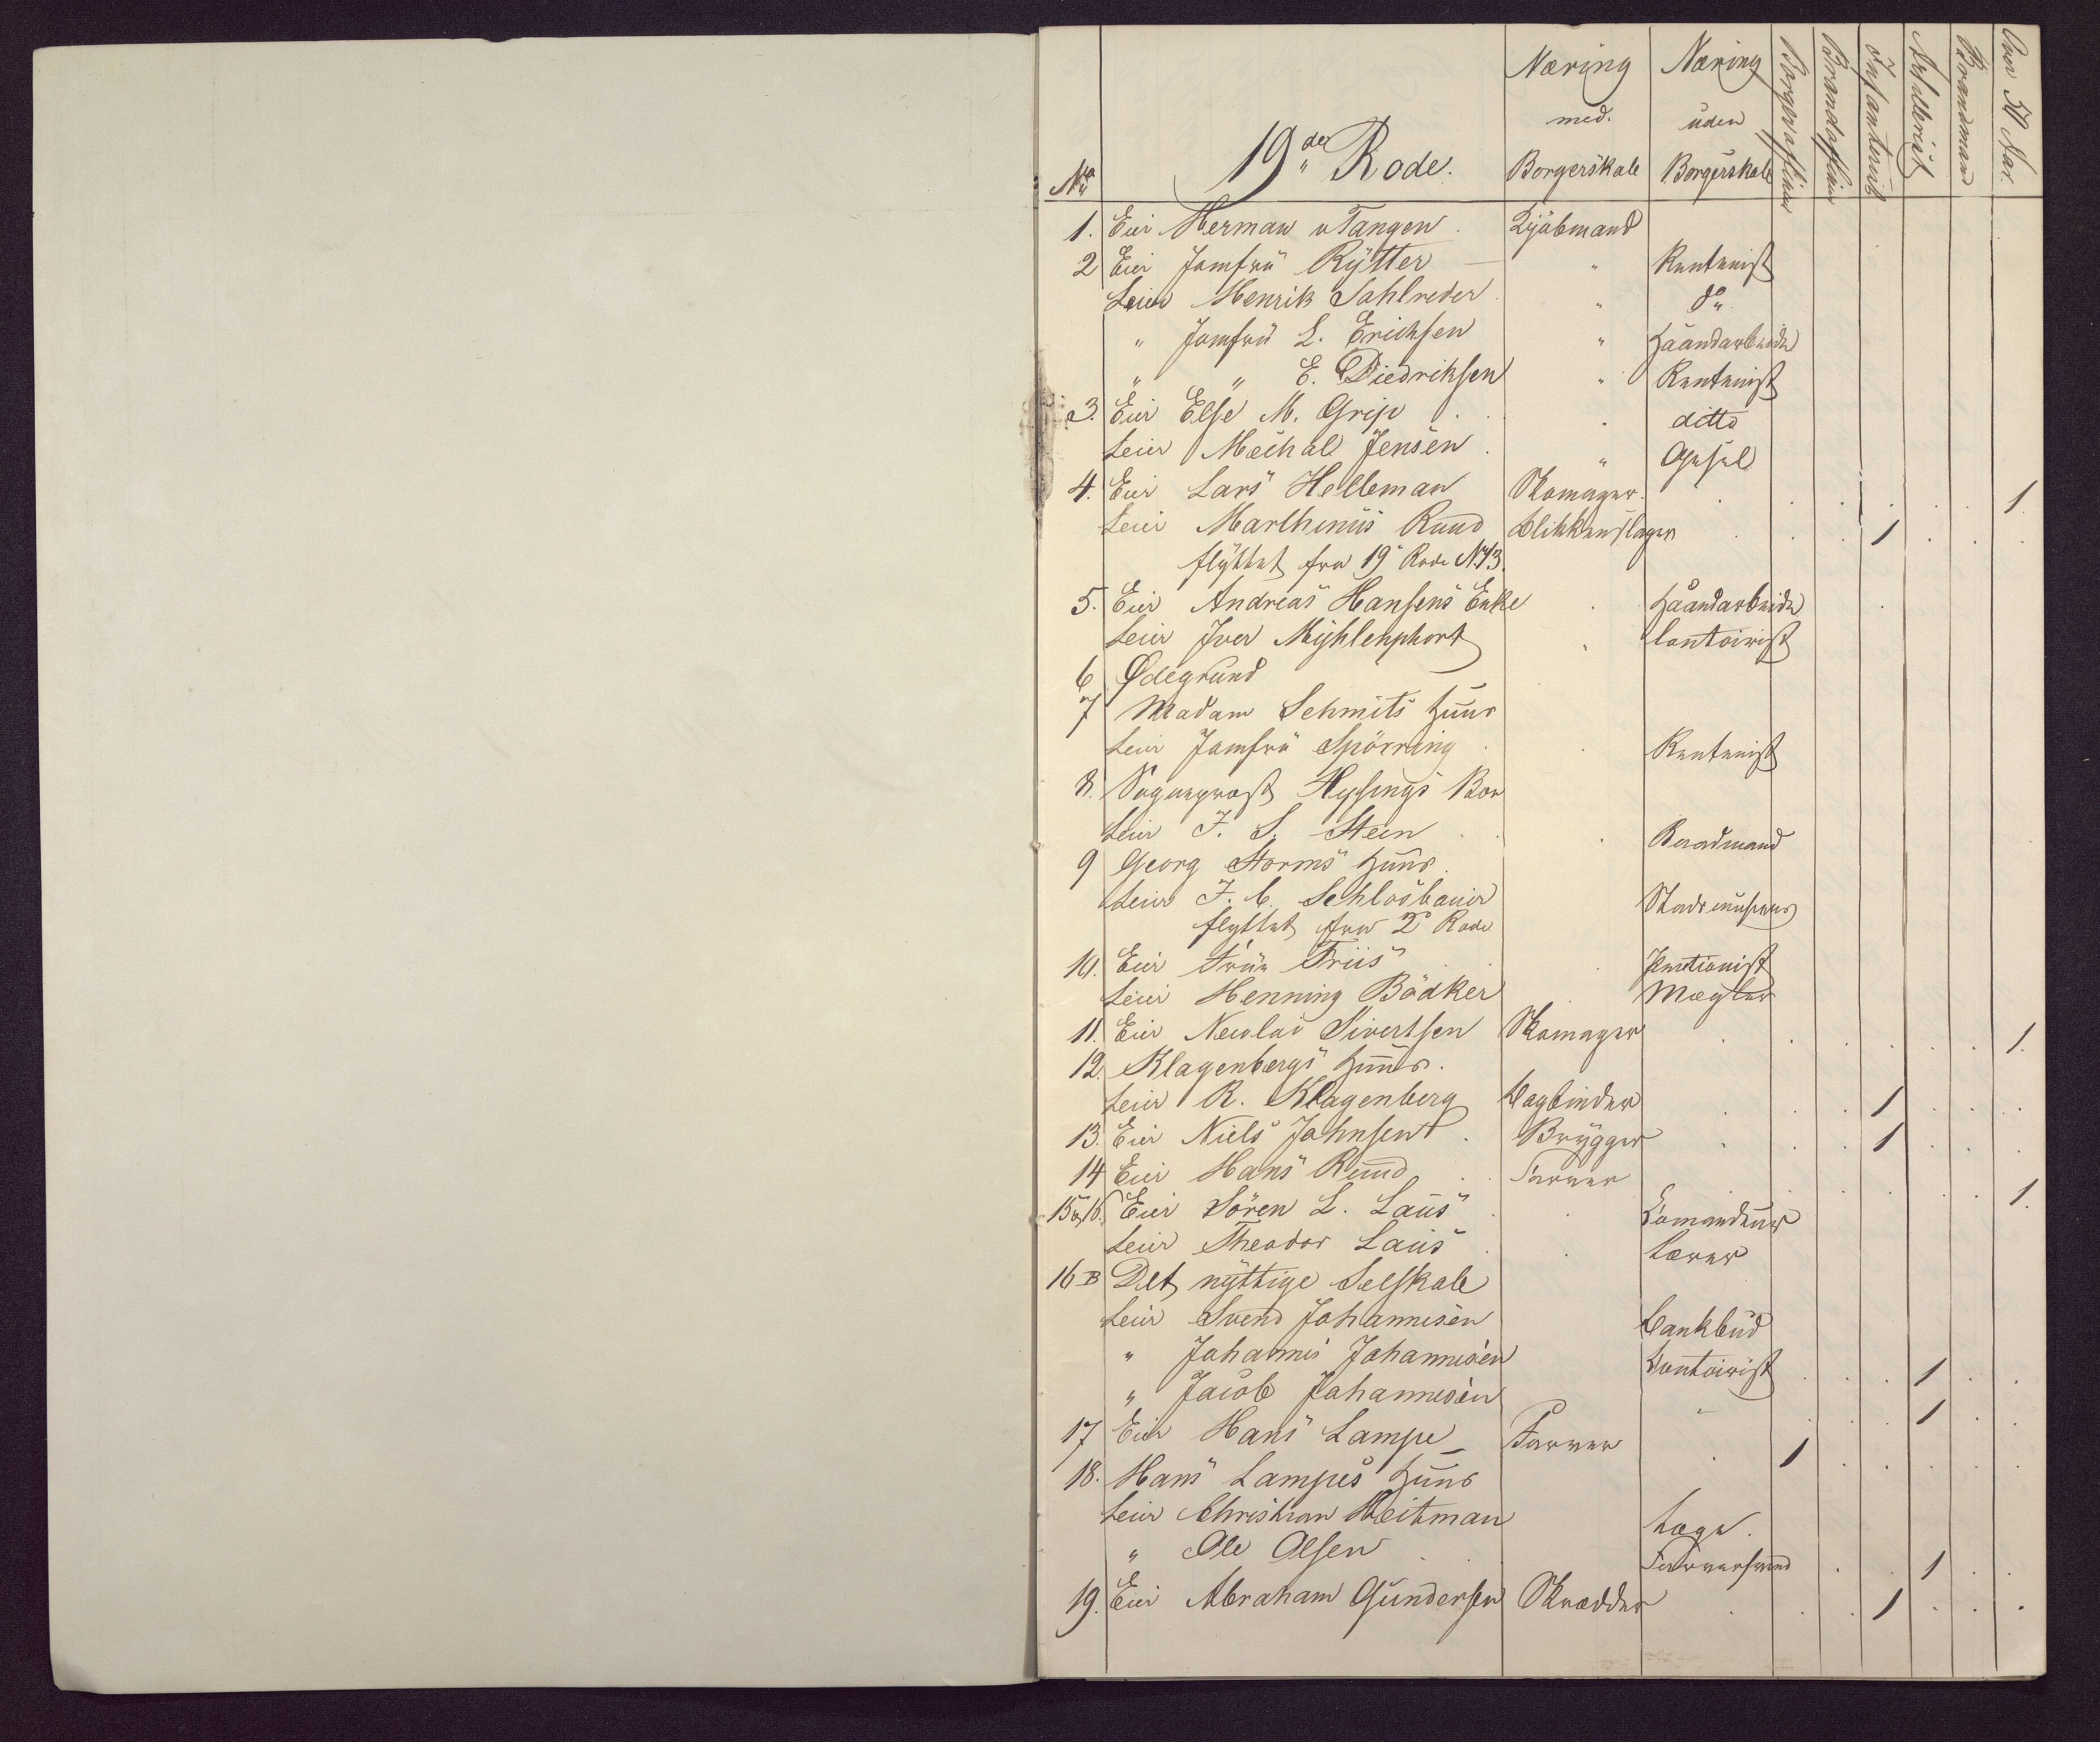 No 19de Rode. Næring med. Borgerskab Næring uden Borgerskab Borgerofficier Brandofficier Infanterist Artillerist Brandmand Over 50 Aar.
1. Eier Herman v Tangen. Kjöbmand
2 Eier Jomfrü Rÿtter — " Rentenist
Leier Henrik Sahlreder " do
" Jomfrü L. Erichsen " Haandarbeide
" " E. Diedriksen " Rentenist
3. Eier Else M. Grip ditto
Leier Mechal Jensen " Gesel
4. Eier Lars Helleman Skomager. 1.
Leier Marthinüs Rüüd Blikkenslager 1
flÿttet fra 19 Rode No 13.
5. Eier Andreas Hansens Enke Haandarbeide
Leier Iver Mÿhlenphort Contoirist
6 Ødegrund
7 Madam Schmits Hüüs
Leier Jomfrü Spörring Rentenist
8. Sogneprest Hysings Bor
Leier J. S. Stein Raadmand
9 Georg Storms Hüüs.
Leier J. C. Schlosbauer Stadsmüsicus
flyttet fra 2 Rode
10. Eier Früe Friis Pentionist
Leier Henning Bödker Mægler
11. Eier Nicolai Sivertsen Skomager 1.
12. Klagenbergs Hüüs.
Leier R. Klagenberg Bogbinder 1
13. Eier Niels Johnsen Brÿgger 1
14 Eier Hans Rüüd Farver 1.
15 & 16. Eier Sören L. Laüs Comandeur
Leier Theodor Laüs Lærer
16 B Det nÿttige Selskab
Leier Svend Johannesen Bankbud
" Johannes Johannesen Contoirist 1
" Jacob Johannesen " 1
17 Eier Hans Lampe Farver 1
18. Hans Lampes Hüüs
Leier Christian Heitman Læge.
" Ole Olsen Farversvend 1
19. Eier Abraham Gündersen Skrædder 1